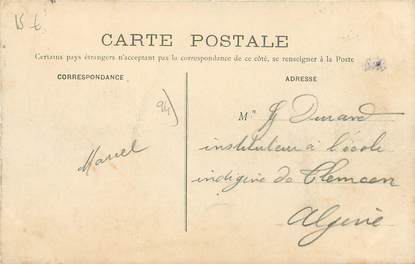 15 €
CARTE POSTALE
Certains pays étrangers n'acceptant pas la correspondance de ce côté, se renseigner à la Poste
CORRESPONDANCE
ADRESSE
94)
Mr Durand
instituteur à l'école
indigène de Tlemcen
Algérie
Marcel